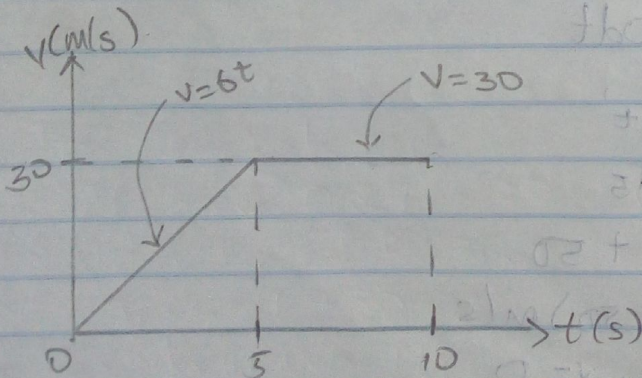 V(m/s)
V=6t
V=30
30
0
5
10
t(s)